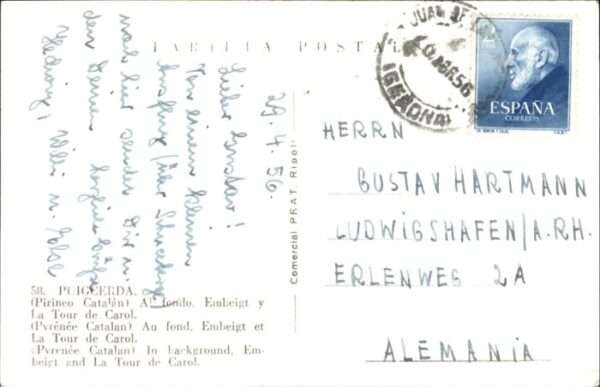 TARJETA POSTAL
29.4.56.
Lieber Gustav!
Von einem kleinen
Ausflug (über Schweiz)
mal hier senden Dir u.
den Deinen herzliche Grüße
Hedwig, Willi u. Else
58. PUIGCERDA.
(Pirineo Catalán) Al fondo, Enbeigt y
La Tour de Carol.
(Pyrénée Catalan) Au fond, Enbeigt et
La Tour de Carol.
(Pyrenée Catalan) In background, Em-
beigt and La Tour de Carol.
Comercial PRAT. Ripoll
JUAN
ABR 56
(GERONA)
ESPAÑA
CORREOS
HERRN
GUSTAV HARTMANN
LUDWIGSHAFEN/A.RH.
ERLENWEG 2A
ALEMANIA